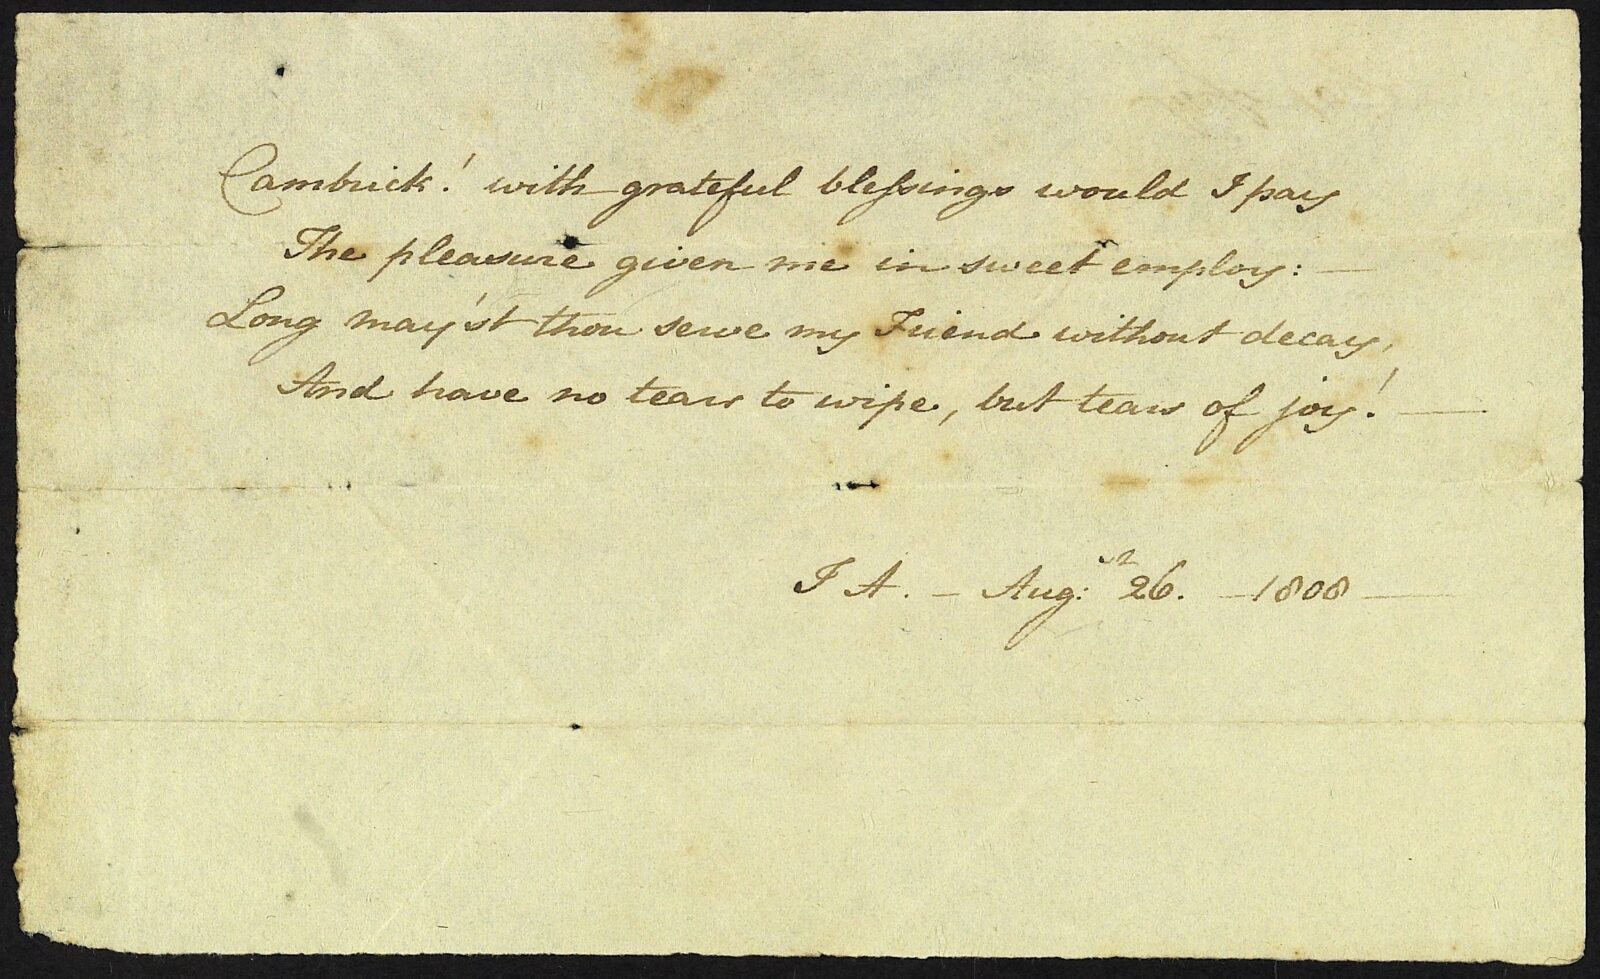 Cambrick! with grateful blessings would I pay
The pleasure given me in sweet employ:—
Long may'st thou serve my Friend without decay,
And have no tears to wipe, but tears of joy!—
J A. — Aug:st 26. — 1808 —